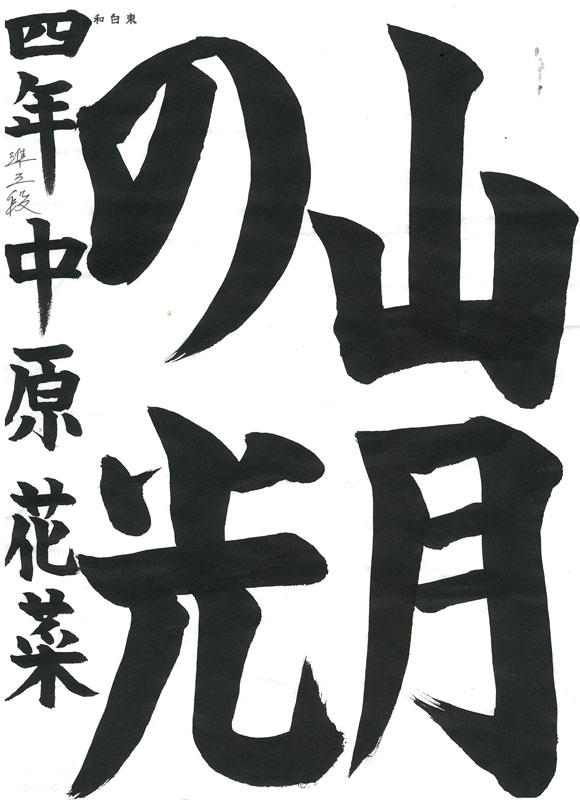 山月
の光
四年 中原花菜
準三段
和白東